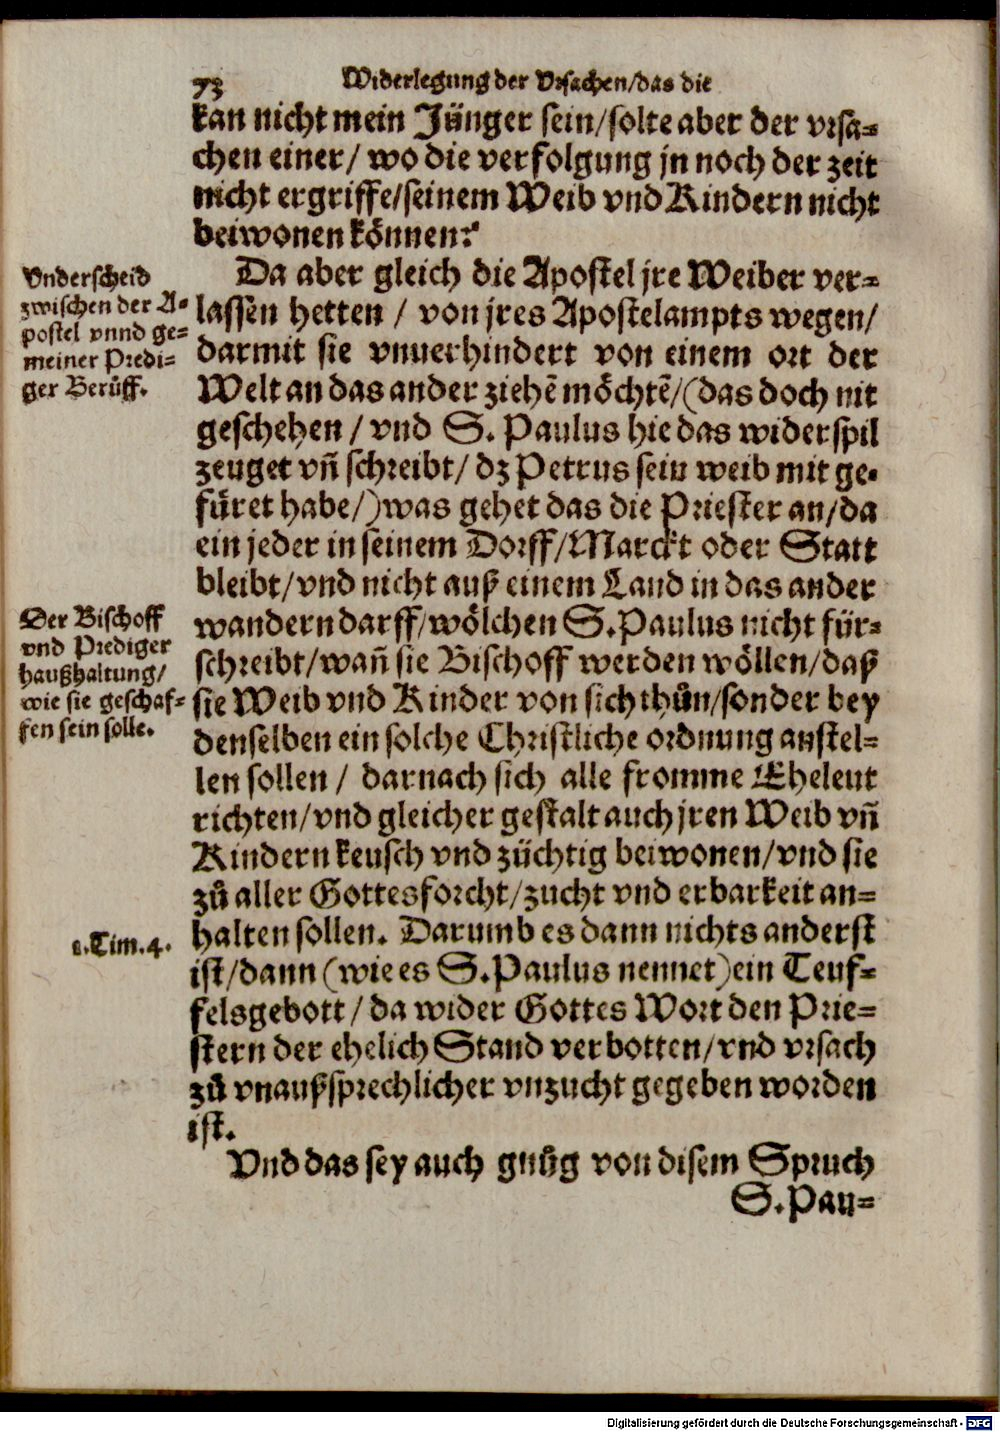 73 Widerlegung der Vrsachen/das die
kan nicht mein Jünger sein/solte aber der vrsa⸗
chen einer/ wo die verfolgung jn noch der zeit
nicht ergriffe/seinem Weib vnd Kindern nicht
beiwonen können?
Vnderscheid
zwischen der A⸗
postel vnnd ge⸗
meiner Predi⸗
ger Berůff.
Da aber gleich die Apostel jre Weiber ver⸗
lassen hetten / von jres Apostelampts wegen/
darmit sie vnuerhindert von einem ort der
Welt an das ander ziehẽ möchtẽ/(das doch nit
geschehen / vnd S. Paulus hie das widerspil
zeuget vñ schreibt/ dz Petrus sein weib mit ge⸗
füret habe/)was gehet das die Priester an/da
ein jeder in seinem Dorff/Marckt oder Statt
bleibt/vnd nicht auß einem Land in das ander
Der Bischoff
vnd Prediger
haußhaltung/
wie sie geschaf⸗
fen sein solle.
wandern darff/wölchen S.Paulus nicht für⸗
schreibt/wañ sie Bischoff werden wöllen/daß
sie Weib vnd Kinder von sich thůn/sonder bey
denselben ein solche Christliche ordnung anstel⸗
len sollen / darnach sich alle fromme Eheleut
richten/vnd gleicher gestalt auch jren Weib vñ
Kindern keusch vnd züchtig beiwonen/vnd sie
zů aller Gottesforcht/zucht vnd erbarkeit an⸗
1.Tim.4.
halten sollen. Darumb es dann nichts anderst
ist/dann (wie es S.Paulus nennet)ein Teuf⸗
felsgebott/ da wider Gottes Wort den Prie⸗
stern der ehelich Stand verbotten/vnd vrsach
zů vnaußsprechlicher vnzucht gegeben worden
ist.
Vnd das sey auch gnůg von disem Spruch
S.Pau⸗
Digitalisierung gefördert durch die Deutsche Forschungsgemeinschaft - DFG